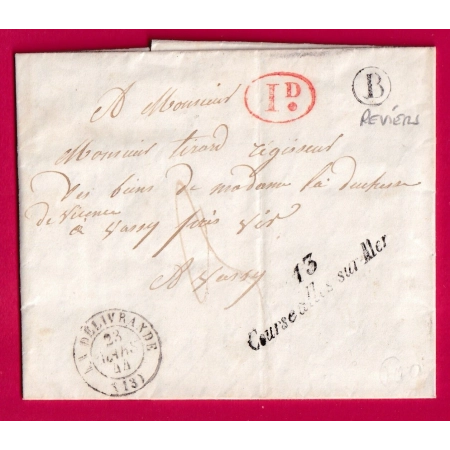 A Monsieur
1D.
B
REVIERS
Monsieur tirard régisseur
des biens de madame la duchesse
de Vicence
a Vassy près Vire
A Vassy
13
Courseulles sur Mer
LA DÉLIVRANDE
23
44
(13)